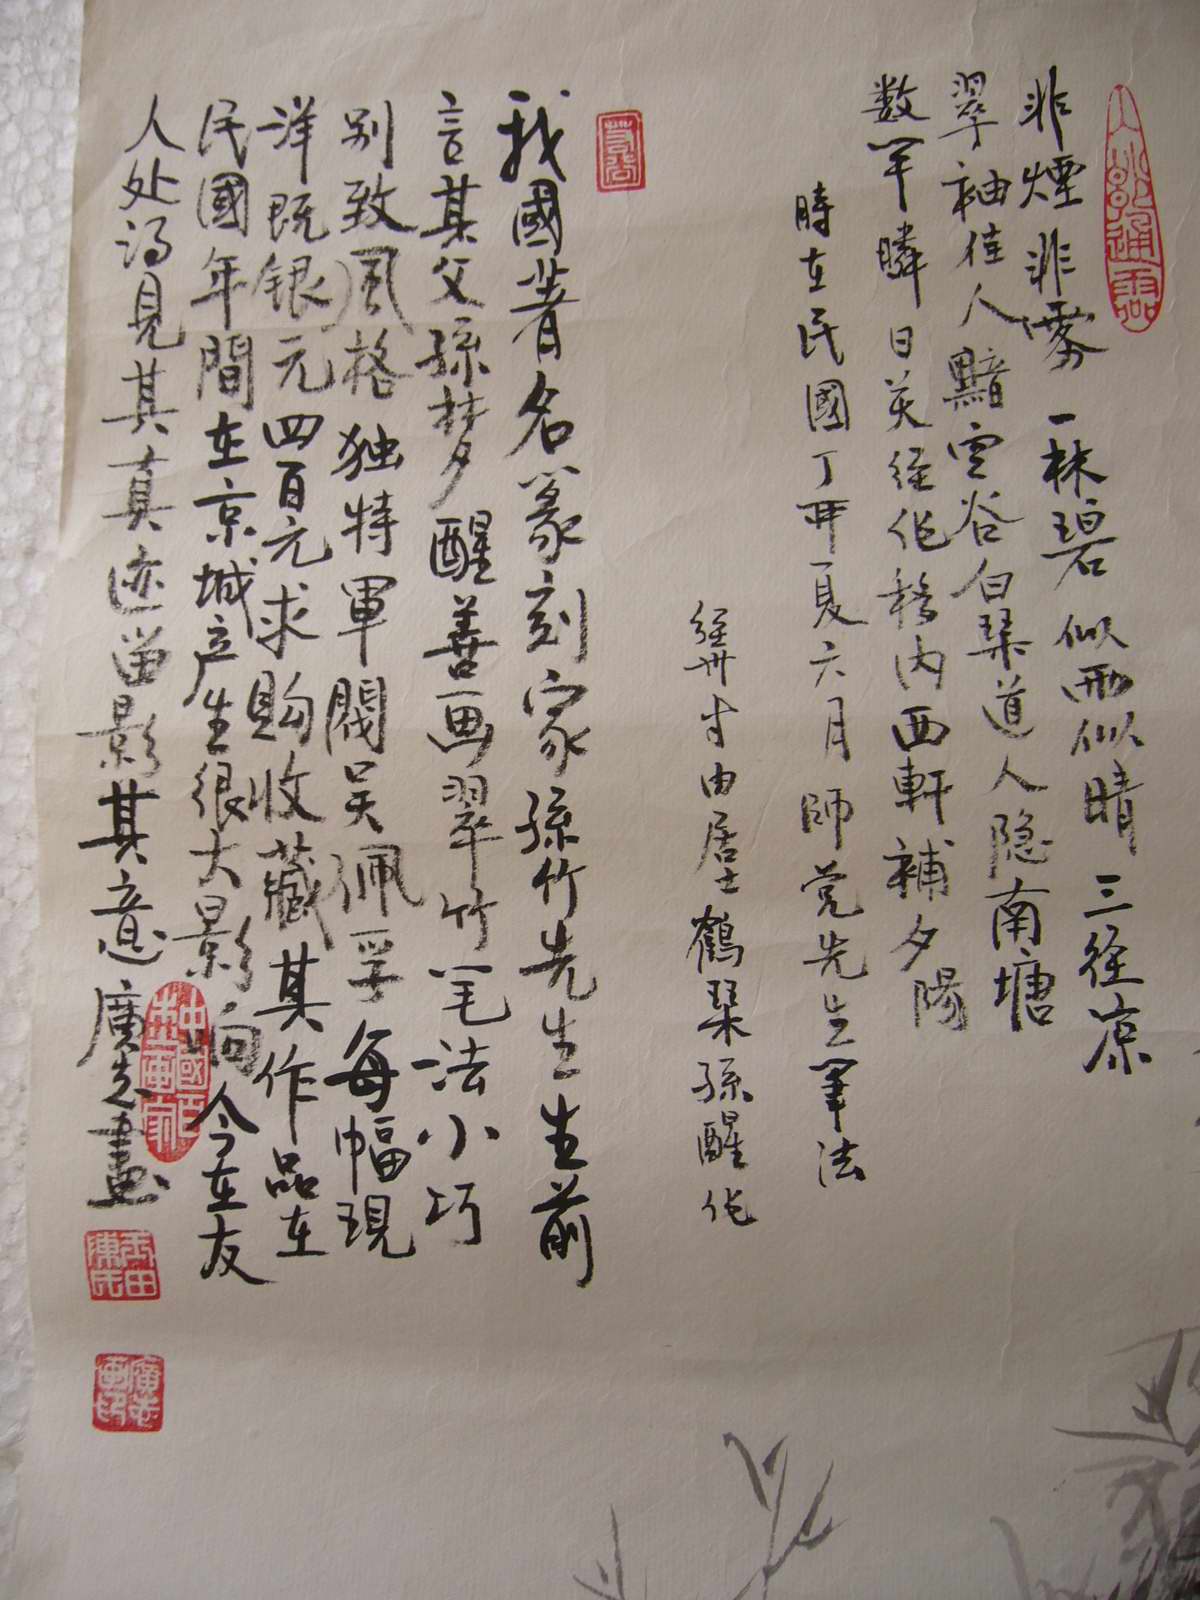 非煙非霧一林碧似雨似晴三径凉
翠袖佳人黯空谷白琹道人隐南塘
数竿 日 径 内西軒補夕陽
時在民國丁 夏六月師 先生筆法
居士鶴琹孫醒作
我國著名篆刻家孫竹先生生前
言其父孫梦醒善画翠竹笔法小巧
别致風格独特軍閥吴佩孚每幅現
洋既银元四百元求购收藏其作品在
民國年間在京城产生很大影响今在友
人处得見其真迹留影其意廣志畫